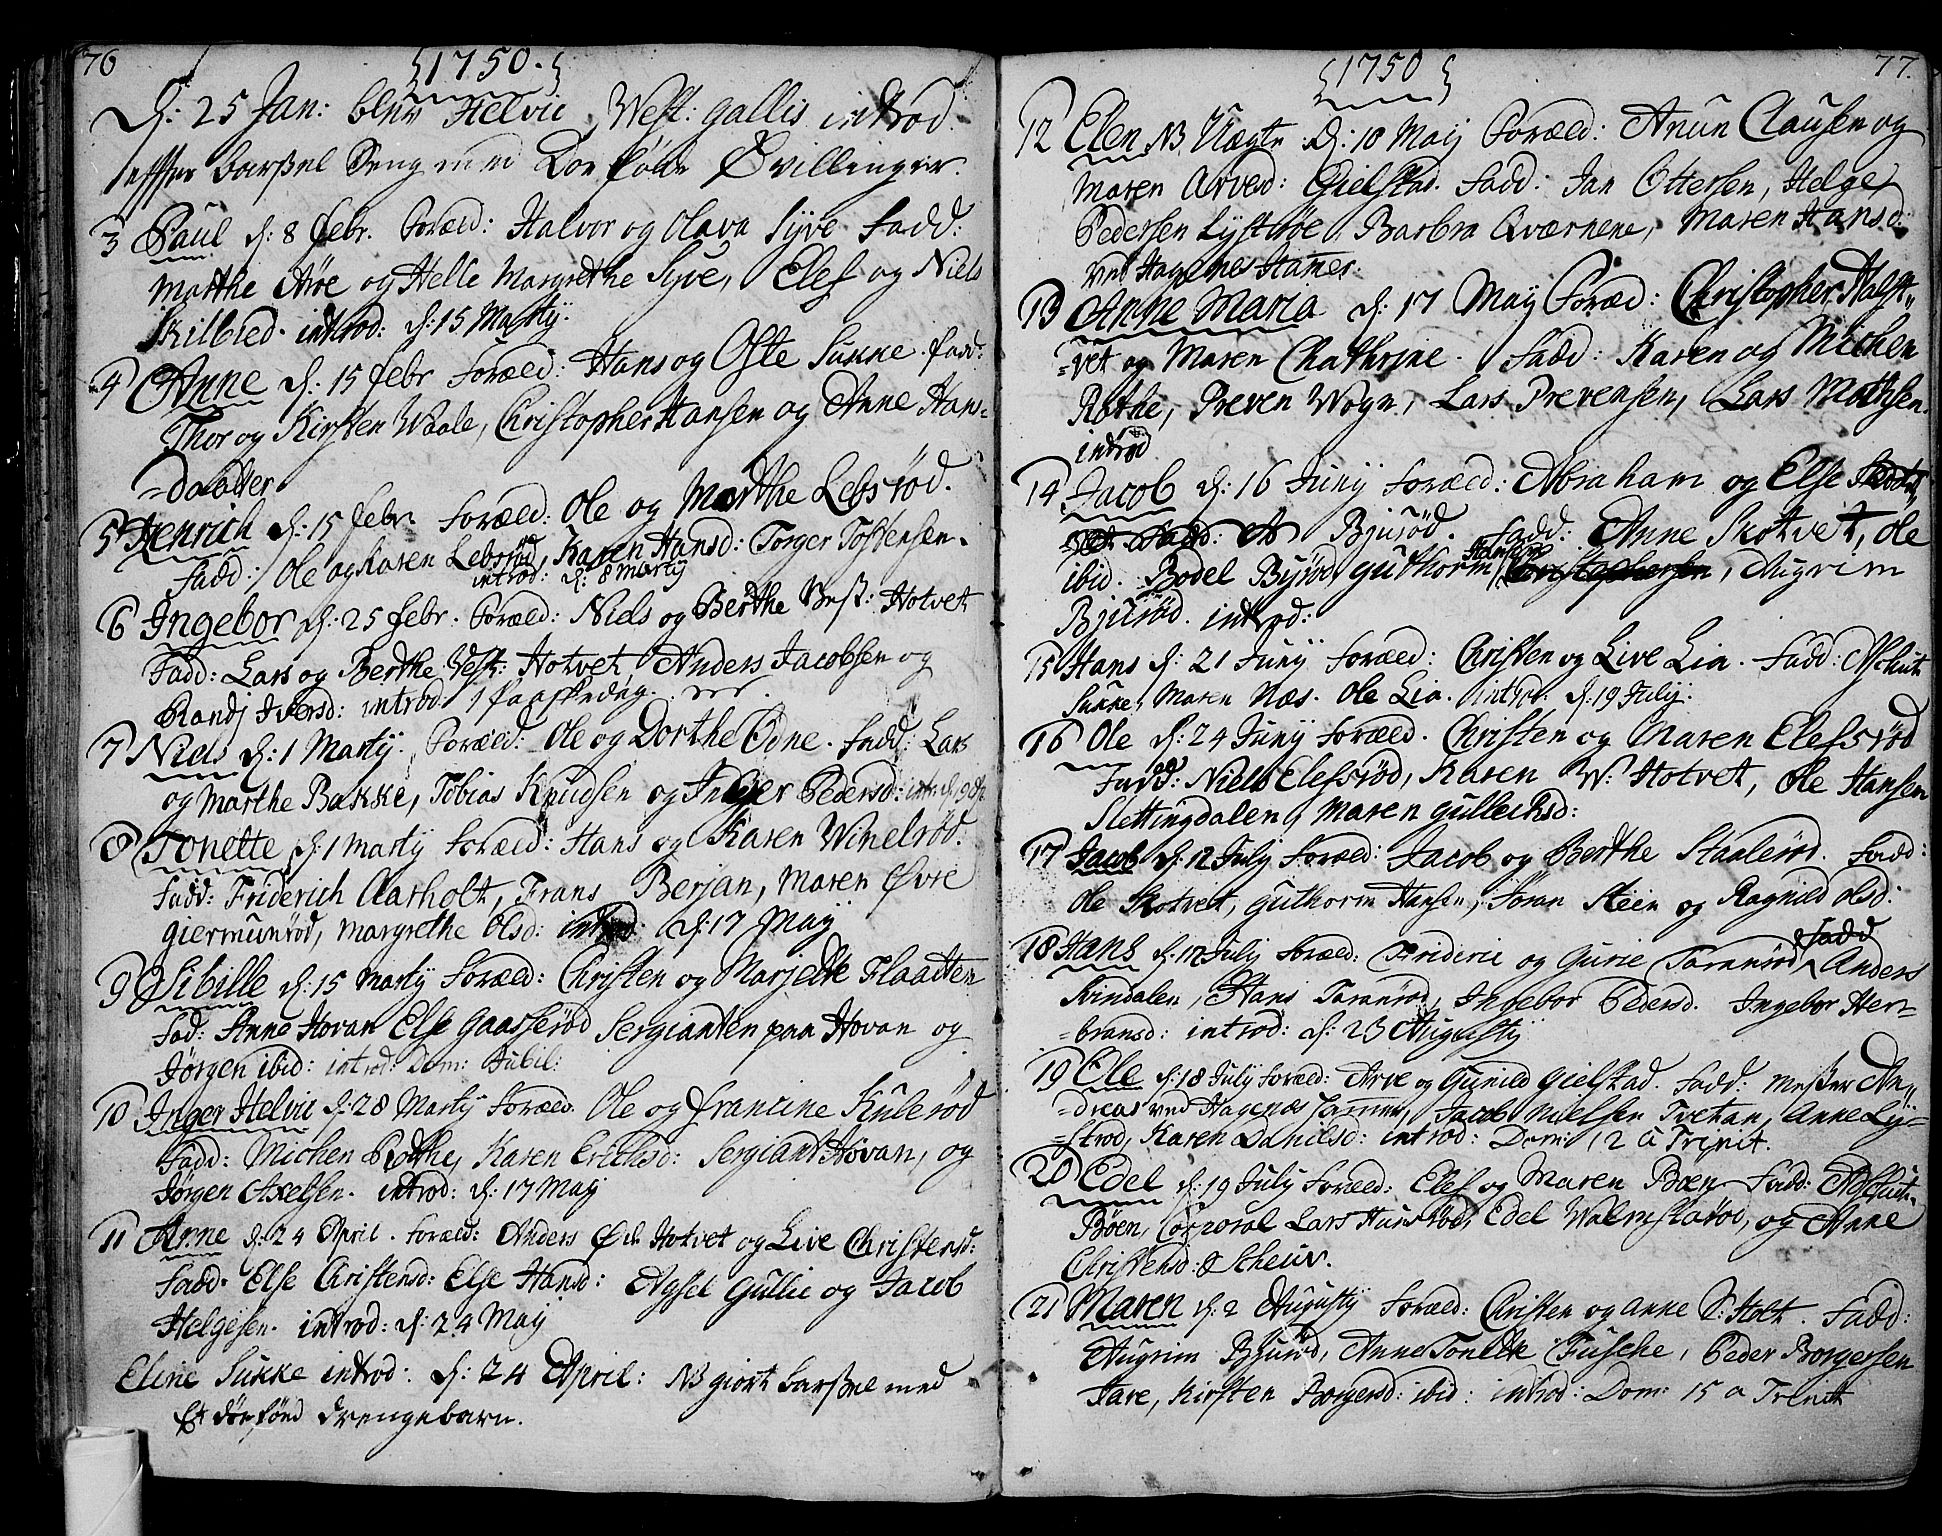 76
1750.
D: 25 Jan: blev Helvic West: gallis introd
effter barsel Seng med Dødføde Tvillinger.
3 Paul d: 8 febr. Foræld: Halvor og Olava Syve Fadd:
Marthe Arøe og Helle Margrethe Syve, Elef og Niels
Skilbred. introd: d: 15 Martij.
4 Anne d: 15 febr Foræld: Hans og Ofte Sukke. fadd:
Thor og Kirsten Waale, Christopher Hansen og Anne Hans-
=daatter
5 Henrich d: 15 febr. Foræld: Ole og Marthe Lebsrød.
Fadd: Ole og Karen Lebsrød, Karen Hansd: Torger Tostensen.
introd: d: 8 Martij
6 Ingebor d: 25 febr. Foræld: Niels og Berthe Vest: Hotvet
Fadd: Lars og Berthe Vest: Hotvet, Anders Jacobsen og
Randj Iversd: introd 1 Paaskedag.
7 Niels d: 1 Martij. Foræld: Ole og Dorthe Odne. Fadd: Lars
og Marthe Bakke, Tobias Knudsen og Inger Pedersd: intr: d: 19 Ap
8 Tonette d: 1 Martij Foræld: Hans og Karen Winelrød.
Fadd: Friderich Aarholt, Frans Berjan, Maren Øvre
giermunrød, Margrethe Olsd: introd. d: 17 Maij
9 Sibille d: 15 Martij Foræld: Christen og Marjette Flaatten
Fad: Anne Hovan Else Gaasserød Sergianten paa Hovan og
Jørgen ibid: introd: Dom: Jubil:
10 Inger Helvic d: 28 Martij Foræld. Ole og Francine Kulerød
Fadd: Michen Røthe, Karen Erichsd: Sergiant Hovan, og
Jørgen Axelsen. introd: d: 17 Maij
11 Anne d: 24 April. Foræld: Anders Ød: Hotvet og Live Christensd:
Fadd. Else Christensd: Else Hansd: Agsel Gullie og Jacob
Helgesen. introd: d: 24 Maij
Eline Sukke introd: d: 24 April: NB giort barsel med
Et dødfønd drengebarn.
77.
1750
12 Elen NB Uægte d: 10 Maij Foræld: Anun Clausen og
Maren Arvesd: Gielstad. Fadd: Jan Ottersen, Helge
Pedersen Lystrøe, Barbra Qværnene, Maren Hansd:
ved Hagenes Hamer.
13 Anne Maria d: 17 Maij Foræd: Christopher Halst-
=vet og Maren Chathrine. Fadd: Karen og Michen
Røthe, Preven Wogn, Lars Prevensen, Lars Mathsen.
introd
14 Jacob d: 16 Junij Foræld: Abraham og Else
Bjurød. Fadd: Anne Skotvet, Ole
ibid. Bodel Byrød, Guthorm Hansen, Augrim
Bjurød. introd:
15 Hans d: 21 Junij Foræld: Christen og Live Lia. Fadd: Aschut
Sukke, Maren Næs. Ole Lia. introd. d: 19 Julij:
16 Ole d: 24 Junij Foræld. Christen og Maren Elefsrød
Fadd: Niels Elefsrød, Karen W: Hotvet, Ole Hansen
Slettingdalen, Maren Gullechsd:
17 Jacob d: 12 Julij Foræld: Jacob og Berthe Staalerød. Fadd:
Ole Skotvet, Guthorm Hansen, Jøran Steen og Ragnild Olsd:
18 Hans d: 12 Julij Foræld: Frideric og Gurie Taranrød, Fadd Anders
Svindalen, Hans Taranrød, Ingebor Pedersd. Ingebor Her-
=bransd: introd: d: 23 Augustij
19 Ole d: 18 Julij Foræld: Arve og Gunild Gielstad. Fadd: Mester An-
=dreas ved Hagenæs Hammer, Jacob Nielsen Tvetan, Anne Ly-
=strød, Karen Danielsd: introd: Dom: 12 a Trinit.
20 Edel d: 19 July Foræld: Elef og Maren Bøen Fadd: Aschut.
Bøen, Corporal Lars Hunsrød, Edel Walmestarød, og Anne
Christensd: Scheur.
21 Maren d: 2 Augustij Foræld: Christen og Anne S: Holt. Fadd:
Augrim Bjurød, Anne Tonette Fusche, Peder Borgersen
Fare, Kirsten Borgersd: ibid: introd: Dom: 15 a Trinit